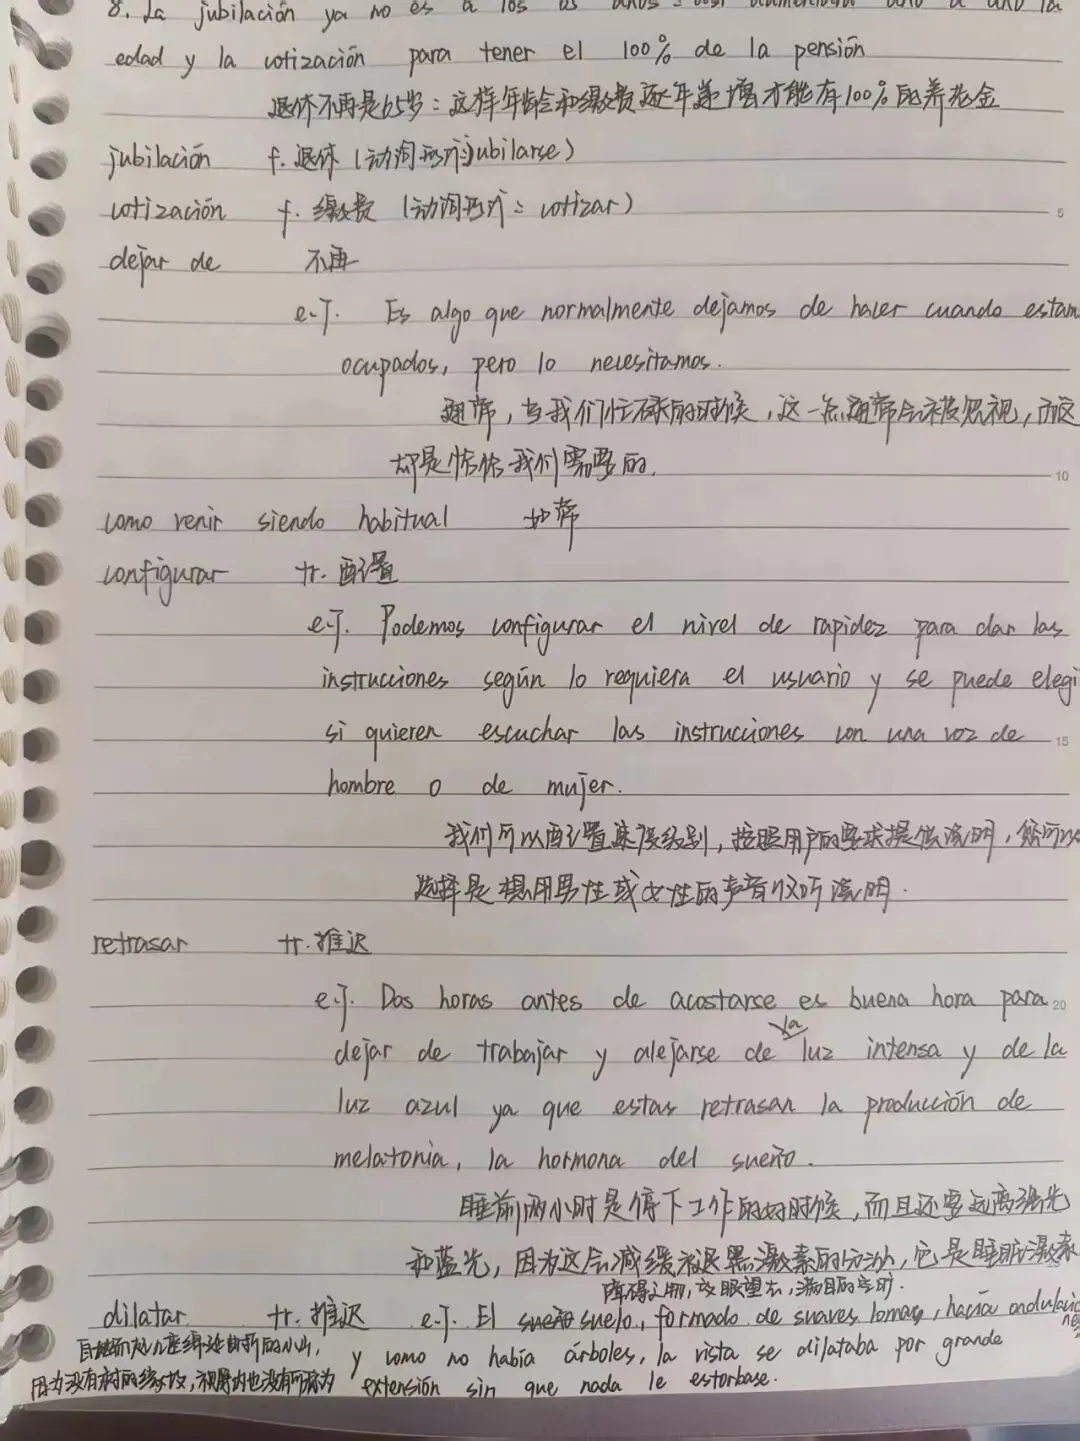 8. La jubilación ya no es a los 65 años: así aumentaría año a año la
edad y la cotización para tener el 100% de la pensión
退休不再是65岁：这样年龄和缴费逐年递增才能有100%的养老金
jubilación f. 退休 (动词形式jubilarse)
cotización f. 缴费 (动词形式: cotizar)
5
dejar de 不再
e.j. Es algo que normalmente dejamos de hacer cuando estam
ocupados, pero lo necesitamos.
通常，当我们忙碌的时候，这一点通常会被忽视，而这
却是恰恰我们需要的.
10
como venir siendo habitual 如常
configurar tr. 配置
e.j. Podemos configurar el nivel de rapidez para dar las
instrucciones según lo requiera el usuario y se puede elegi
si quieren escuchar las instrucciones con una voz de
15
hombre o de mujer.
我们可以配置速度级别，按照用户的要求提供说明，您可以
选择是想用男性或女性的声音收听说明.
retrasar tr. 推迟
e.j. Dos horas antes de acostarse es buena hora para
20
dejar de trabajar y alejarse de la luz intensa y de la
luz azul ya que estas retrasan la producción de
melatonia, la hormona del sueño.
睡前两小时是停下工作的好时候，而且还要远离强光
和蓝光，因为这会减缓褪黑激素的分泌，它是睡眠激素
障碍之物，放眼望去，满目的空旷.
dilatar tr. 推迟 e.j. El suelo, formado de suaves lomas, hacía ondulacio
nes
因为没有树的缘故，视野内也没有可称为
y como no había árboles, la vista se dilataba por grande
extensión sin que nada le estorbase.